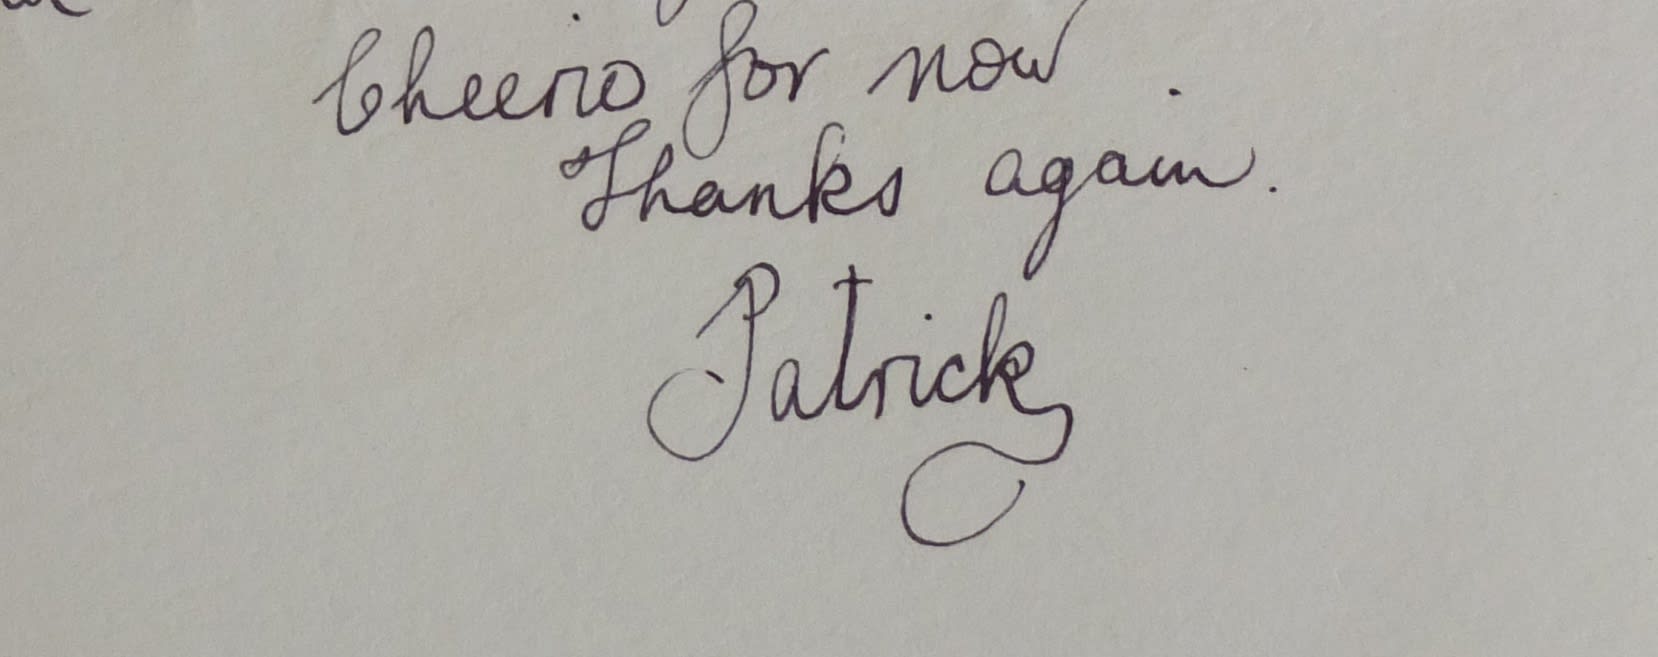 Cheerio for now.
Thanks again.
Patrick